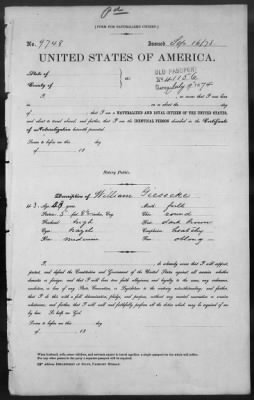 [FORM FOR NATURALIZED CITIZEN.]
No. 9748 Issued Sep 16/75
UNITED STATES OF AMERICA.
State of
County of
ss:
OLD PASSPORT
No 41156
July 9 1874
I, do swear that I was born
in on or about the day
of , that I am a NATURALIZED AND LOYAL CITIZEN OF THE UNITED STATES,
and about to travel abroad; and further, that I am the IDENTICAL PERSON described in the Certificate
of Naturalization herewith presented.
Sworn to before me this day
of 18
Notary Public.
Description of William Giesecke
Age, 29 years Mouth, full
Stature, 5 feet 8 inches, Eng. Chin, round
Forehead, high Hair, dark brown
Eyes, hazel Complexion, healthy
Nose, medium Face, oblong
I, do solemnly swear that I will support,
protect, and defend the Constitution and Government of the United States against all enemies, whether
domestic or foreign; and that I will bear true faith, allegiance, and loyalty to the same, any ordinance,
resolution, or law of any State, Convention, or Legislature to the contrary notwithstanding; and further,
that I do this with a full determination, pledge, and purpose, without any mental reservation or evasion
whatsoever; and further, that I will well and faithfully perform all the duties which may be required of me
by law. So help me God.
Sworn to before me this day
of 18
When husband, wife, minor children, and servants expect to travel together, a single passport for the whole will suffice.
For any other person in the party a separate passport will be required.
Address DEPARTMENT OF STATE, PASSPORT BUREAU.